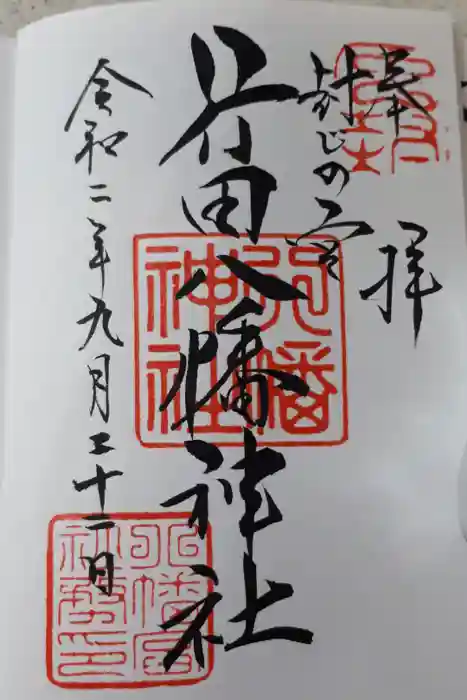 奉拝
封じの宮
行田八幡神社
令和二年九月二十二日
八幡神社
八幡宮社務所印